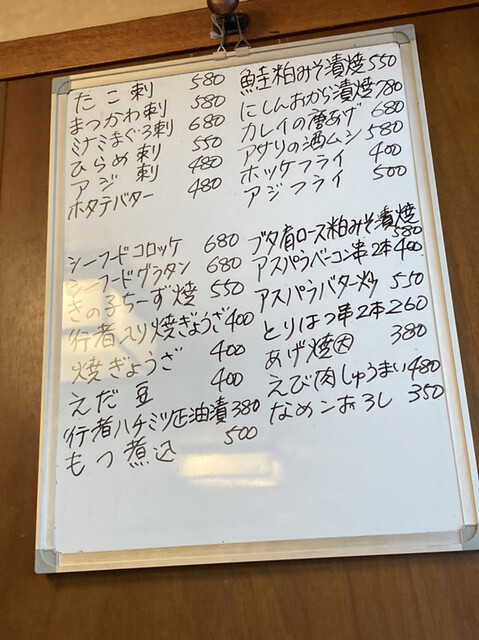 たこ刺 580
まつかわ刺 580
ミナミまぐろ刺 680
ひらめ刺 550
アジ刺 480
ホタテバター 480
シーフードコロッケ 680
シーフードグラタン 680
きの子ちーず焼 550
行者入り焼ぎょうざ 400
焼ぎょうざ 400
えだ豆 400
行者ハチミツ正油漬 380
もつ煮込 500
鮭粕みそ漬焼 550
にしんおから漬焼 780
カレイの唐あげ 680
アサリの酒ムシ 580
ホッケフライ 400
アジフライ 500
ブタ肩ロース粕みそ漬焼
580
アスパラベーコン串2本 400
アスパラバター炒 550
とりはつ串2本 260
あげ焼 380
えび肉しゅうまい 480
なめこおろし 350